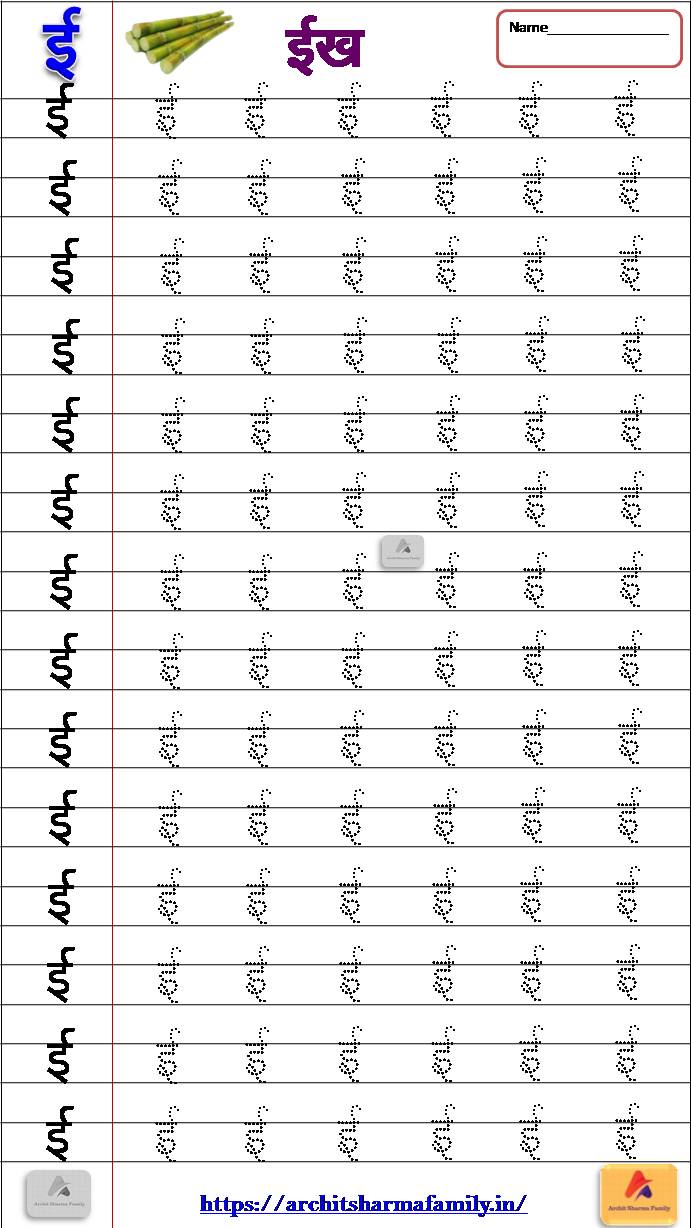 ई ईख Name________________
ई ई ई ई ई ई ई
ई ई ई ई ई ई ई
ई ई ई ई ई ई ई
ई ई ई ई ई ई ई
ई ई ई ई ई ई ई
ई ई ई ई ई ई ई
Archit Sharma Family
ई ई ई ई ई ई ई
ई ई ई ई ई ई ई
ई ई ई ई ई ई ई
ई ई ई ई ई ई ई
ई ई ई ई ई ई ई
ई ई ई ई ई ई ई
ई ई ई ई ई ई ई
ई ई ई ई ई ई ई
Archit Sharma Family https://architsharmafamily.in/ Archit Sharma Family